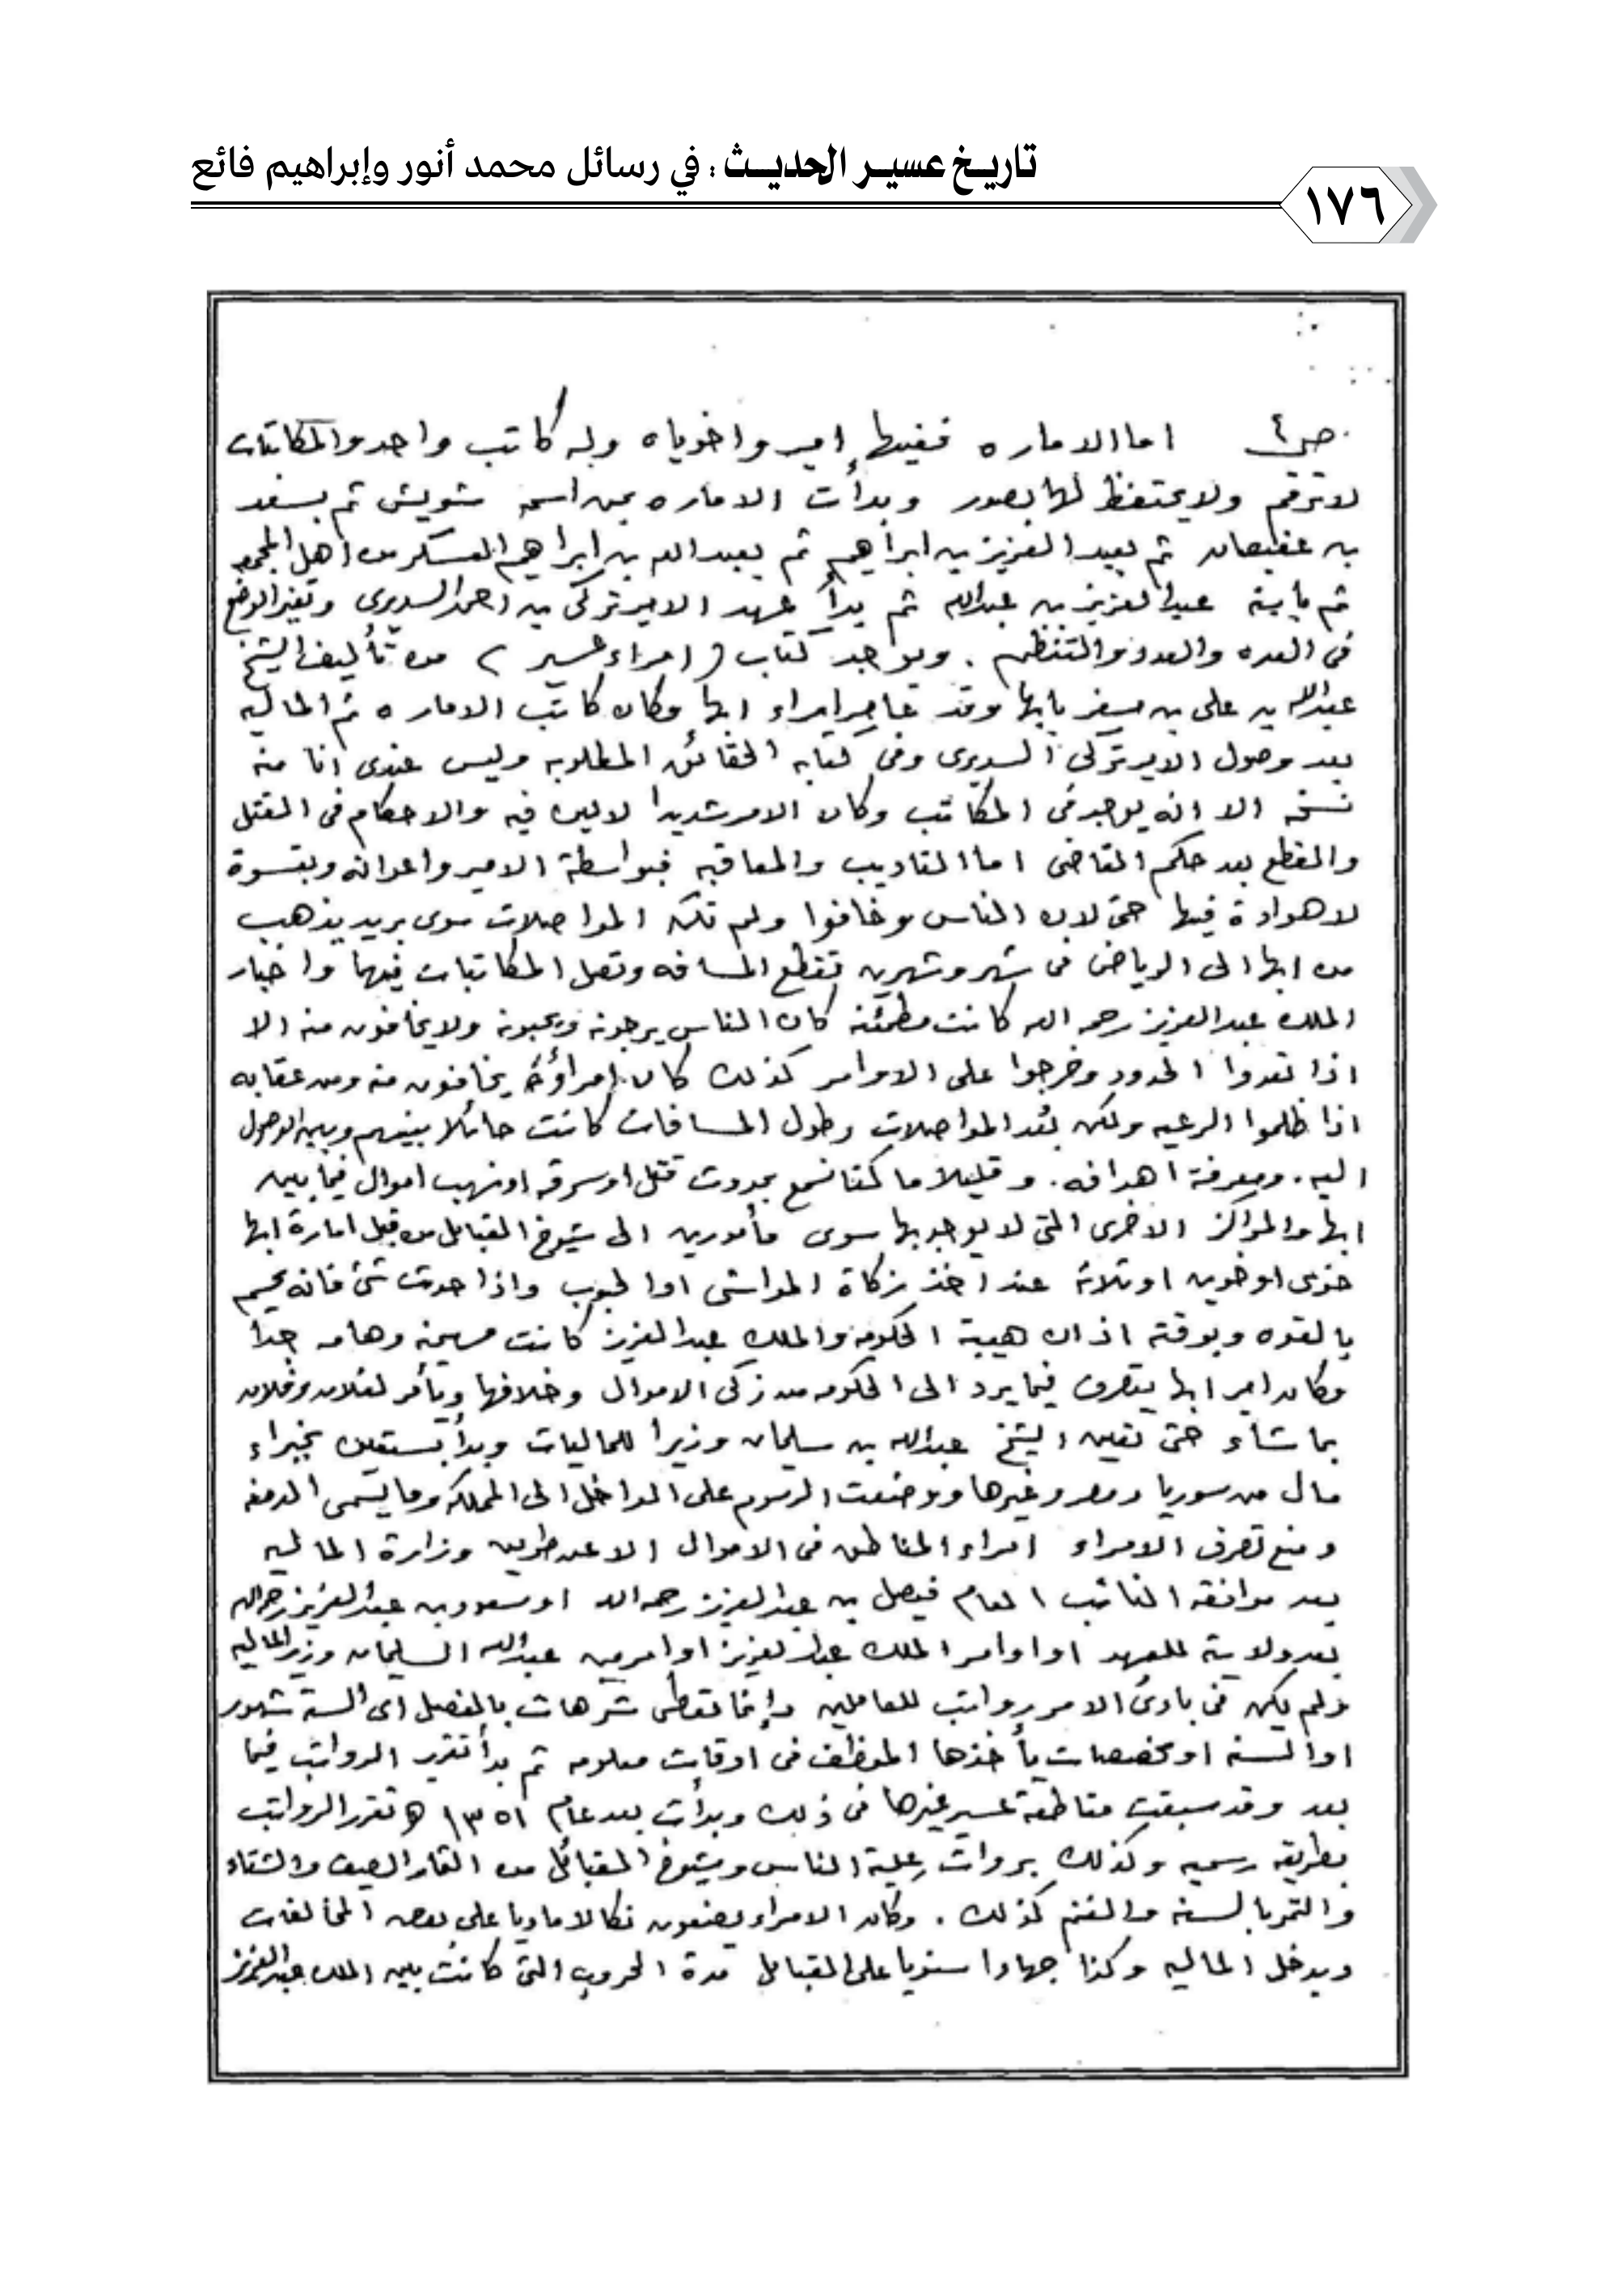 تاريخ عسير الحديث : في رسائل محمد أنور وإبراهيم فائع
١٧٦
ص٤ اما الاماره ففيها امير واخوياه وله كاتب واحد والمكاتبات
لاترقم ولايحتفظ لها بصور وبدأت الاماره بمن اسمه شويش ثم بسعد
بن عفيصان ثم بعبد العزيز بن ابراهيم ثم بعبدالله بن ابراهيم العسكر من اهل المجمعه
ثم بابنه عبدالعزيز بن عبدالله ثم بدأ عهد الامير تركي بن احمد السديري وتغير الوضع
في العده والعدد والتنظيم . ويوجد كتاب ( امراء عسير ) من تأليف الشيخ
عبدالله بن علي بن مسفر بابها وقد عاصر امراء ابها وكان كاتب الاماره ثم الماليه
بعد وصول الامير تركي السديري وفي كتابه الحقائق المطلوبه وليس عندي انا منه
نسخه الا انه يوجد في المكاتب وكان الامر شديدا لا لين فيه والاحكام في القتل
والقطع بعد حكم القاضي اما التاديب والمعاقبه فبواسطة الامير واعوانه وبقسوة
لا هوادة فيها حتى لان الناس وخافوا ولم تكن المواصلات سوى بريد يذهب
من ابها الى الرياض في شهر وشهرين تقطع المسافه وتصل المكاتبات فيها واخبار
الملك عبدالعزيز رحمه الله كانت مطمئنه كان الناس يرجونه ويحبونه ولا يخافون منه الا
اذا تعدوا الحدود وخرجوا على الاوامر كذلك كان امراؤه يخافون منه ومن عقابه
اذا ظلموا الرعيه ولكن بُعد المواصلات وطول المسافات كانت حائلا بينهم وبين الوصول
اليه . ومعرفة اهدافه . وقليلا ما كنا نسمع بحدوث قتل او سرقه او نهب اموال فيما بين
ابها والمراكز الاخرى التي لا يوجد بها سوى مأمورين الى شيوخ القبائل من قبل امارة ابها
خوي او خوين او ثلاثه عند اخذ زكاة المواشي او الحبوب واذا حدث شئ فانه يحسم
بالقوه وبوقته اذ ان هيبة الحكومه والملك عبدالعزيز كانت مهيمنه وهامه جدا
وكان امير ابها يتصرف فيما يرد الى الحكومه من زكى الاموال وخلافها ويأمر لفلان وفلان
بما شاء حتى تعين الشيخ عبدالله بن سليمان وزيرا للماليات وبدأ يستعين بخبراء
مال من سوريا ومصر وغيرها ووضعت الرسوم على الداخل الى المملكه وما يسمى الدمغه
ومنع تصرف الامراء امراء المناطق في الاموال الا عن طريق وزارة الماليه
بعد موافقه النائب العام فيصل بن عبدالعزيز رحمه الله او سعود بن عبدالعزيز رحمه الله
بعد ولايته للعهد او اوامر الملك عبدالعزيز او امر من عبدالله السليمان وزير الماليه
ولم يكن في بادئ الامر رواتب للعاملين وإنما تعطى شرهات بالفصل اي الستة شهور
او السنه او مخصصات يأخذها الموظف في اوقات معلومه ثم بدأ تقرير الرواتب فيما
بعد وقد سبقت مقاطعة عسير غيرها في ذلك وبدأت بعد عام ١٣٥١ هـ تقرر الرواتب
بطريقه رسميه وكذلك بروات علية الناس وشيوخ القبائل من الصيف والشتاء
والتمر بالسنه والغنم كذلك . وكان الامراء يضعون نكالا ماديا على بعض المخالفات
ويدخل الماليه وكذا جهادا سنويا على القبائل مدة الحروب التي كانت بين الملك عبدالعزيز